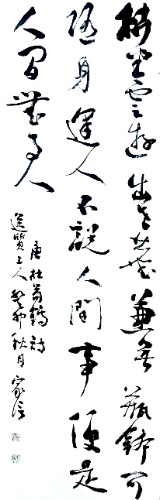 枿坐雲遊出世塵兼無瓶鉢可
隨身逢人不說人間事便是
人間無事人
唐杜荀鶴詩
送質上人癸卯秋月家